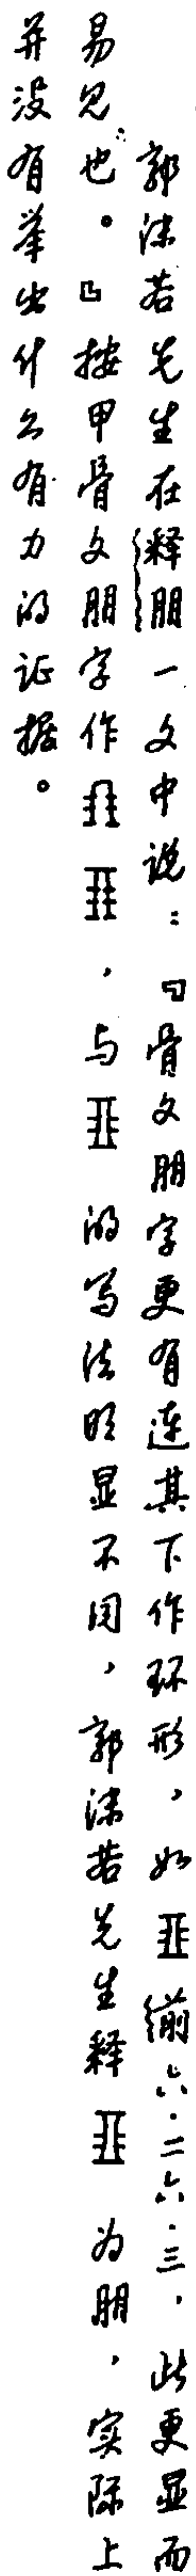 郭沫若先生在释朋一文中说：『骨文朋字更有连其下作环形，如　前六·二六·三，此更显而
易见也。』按甲骨文朋字作　　，与　的写法明显不同，郭沫若先生释　为朋，实际上
并没有举出什么有力的证据。